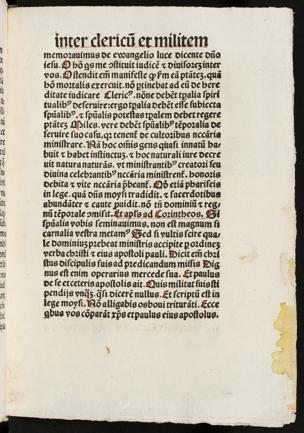 inter clericū et militem
memorauimus de ewangelio luce dicente dn̄o
iesu. O hō qs me ꝯstituit iudicē ⁊ diuisorez inter
vos. Ostendit em̄ manifeste ꝙ xm eā ptātez. quā
hō mortalis exercuit. nō ptinebat ad eū de here
ditate iudicare Cleric9. nōne debēt tpalia spiri
tualib9 deseruire: ergo tpalia debēt esse subiecta
spūalib9. ⁊ spūalis potestas tpalem debet regere
ptātez Miles. vere debēt spūalib9 tēporalia de
seruire suo casu. qr tenent de cultoribus necāria
ministrare. Nā hoc om̄is gens quasi innatū ha
buit ⁊ habet instinctuz. ⁊ hoc naturali iure decre
uit natura naturās. vt ministrantib9 creatori seu
diuina celebrantib9 necāria ministrent. honoris
debita ⁊ vite necāria p̄beant. Qd etiā phariseis
in lege. quā dn̄s moysi tradidit. ⁊ sacerdotibus
abundāter ⁊ caute puidit. nō tn̄ dominiū ⁊ reg
nū tēporale ꝯmisit. Et apls ad Corintheos. Si
spūalia vobis seminauimus. non est magnum si
carnalia vestra metam9 Sed si vultis scire qua
le dominiuz prebeat ministris accipite ꝑ ordinez
verba christi ⁊ eius apostoli pauli. Dicit em̄ chri
stus discipulis suis ad predicandum missis Dig
nus est enim operarius mercede sua. Et paulus
de se et ceteris apostolis ait. Quis militat suis sti
pendijs vnqz. qsi diceret nullus. Et scriptū est in
lege moysi. Nō alligabis os boui trituranti. Ecce
qbus vos cōparāt xps et paulus eius apostolus.